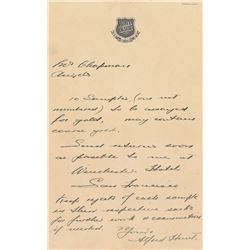 Mr Chapman
Angels
10 Samples, (one not
numbered) to be assayed
for gold, may contain
coarse gold.
Send returns soon
as possible to me at
Winchester Hotel
San Francisco
Keep rejects of each sample
in their respective sacks
for further work & examination
if needed. Yours
Alfred